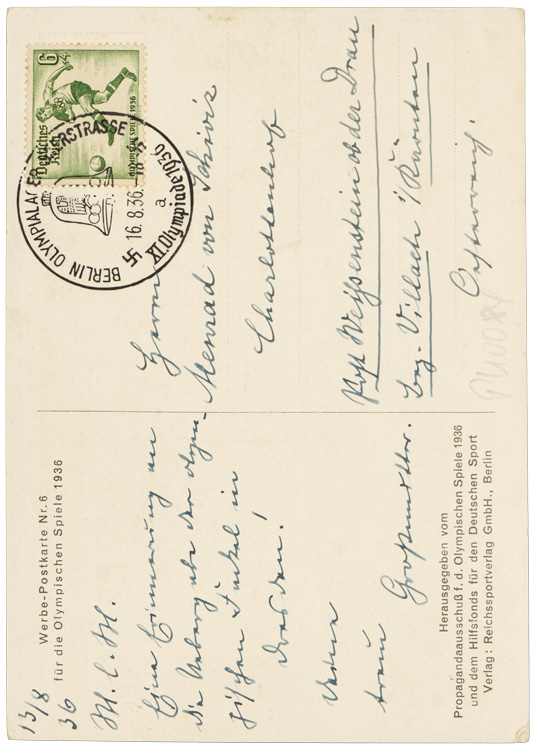 Werbe-Postkarte Nr. 6
für die Olympischen Spiele 1936
13/8
36
M. l. M.
Eine Erinnerung an
die Übergabe der olym-
pischen Fackel in
Dresden!
Deine
treue Großmutter.
Herausgegeben vom
Propagandaausschuß f. d. Olympischen Spiele 1936
und dem Hilfsfonds für den Deutschen Sport
Verlag: Reichssportverlag GmbH., Berlin
6
+4
Deutsches
Reich
OLYMPISCHE SPIELE 1936
BERLIN OLYMPIALAGER
STRASSE
16.8.36.
a
XI Olympiade 1936
Herrn
Menrad von
Charlottenhof
Post Weißenstein ob der Drau
bez. Villach i/ Kärnten
Österreich